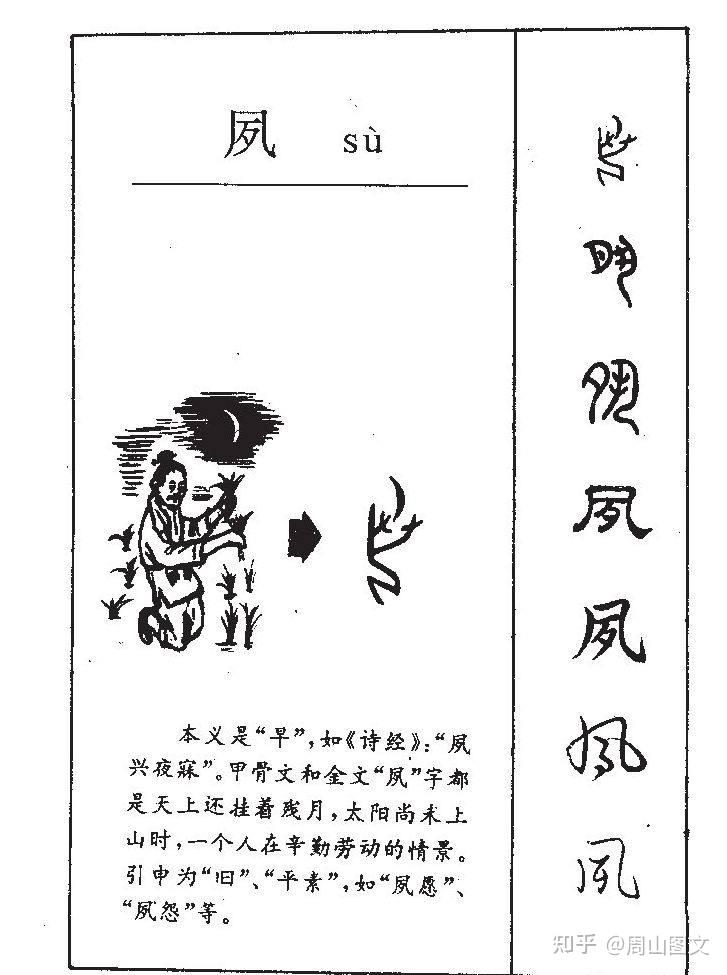 夙 sù
本义是“早”，如《诗经》：“夙
兴夜寐”。甲骨文和金文“夙”字都
是天上还挂着残月，太阳尚未上
山时，一个人在辛勤劳动的情景。
引申为“旧”、“平素”，如“夙愿”、
“夙怨”等。
夙
夙
夙
夙
夙
夙
夙
知乎 @周山图文